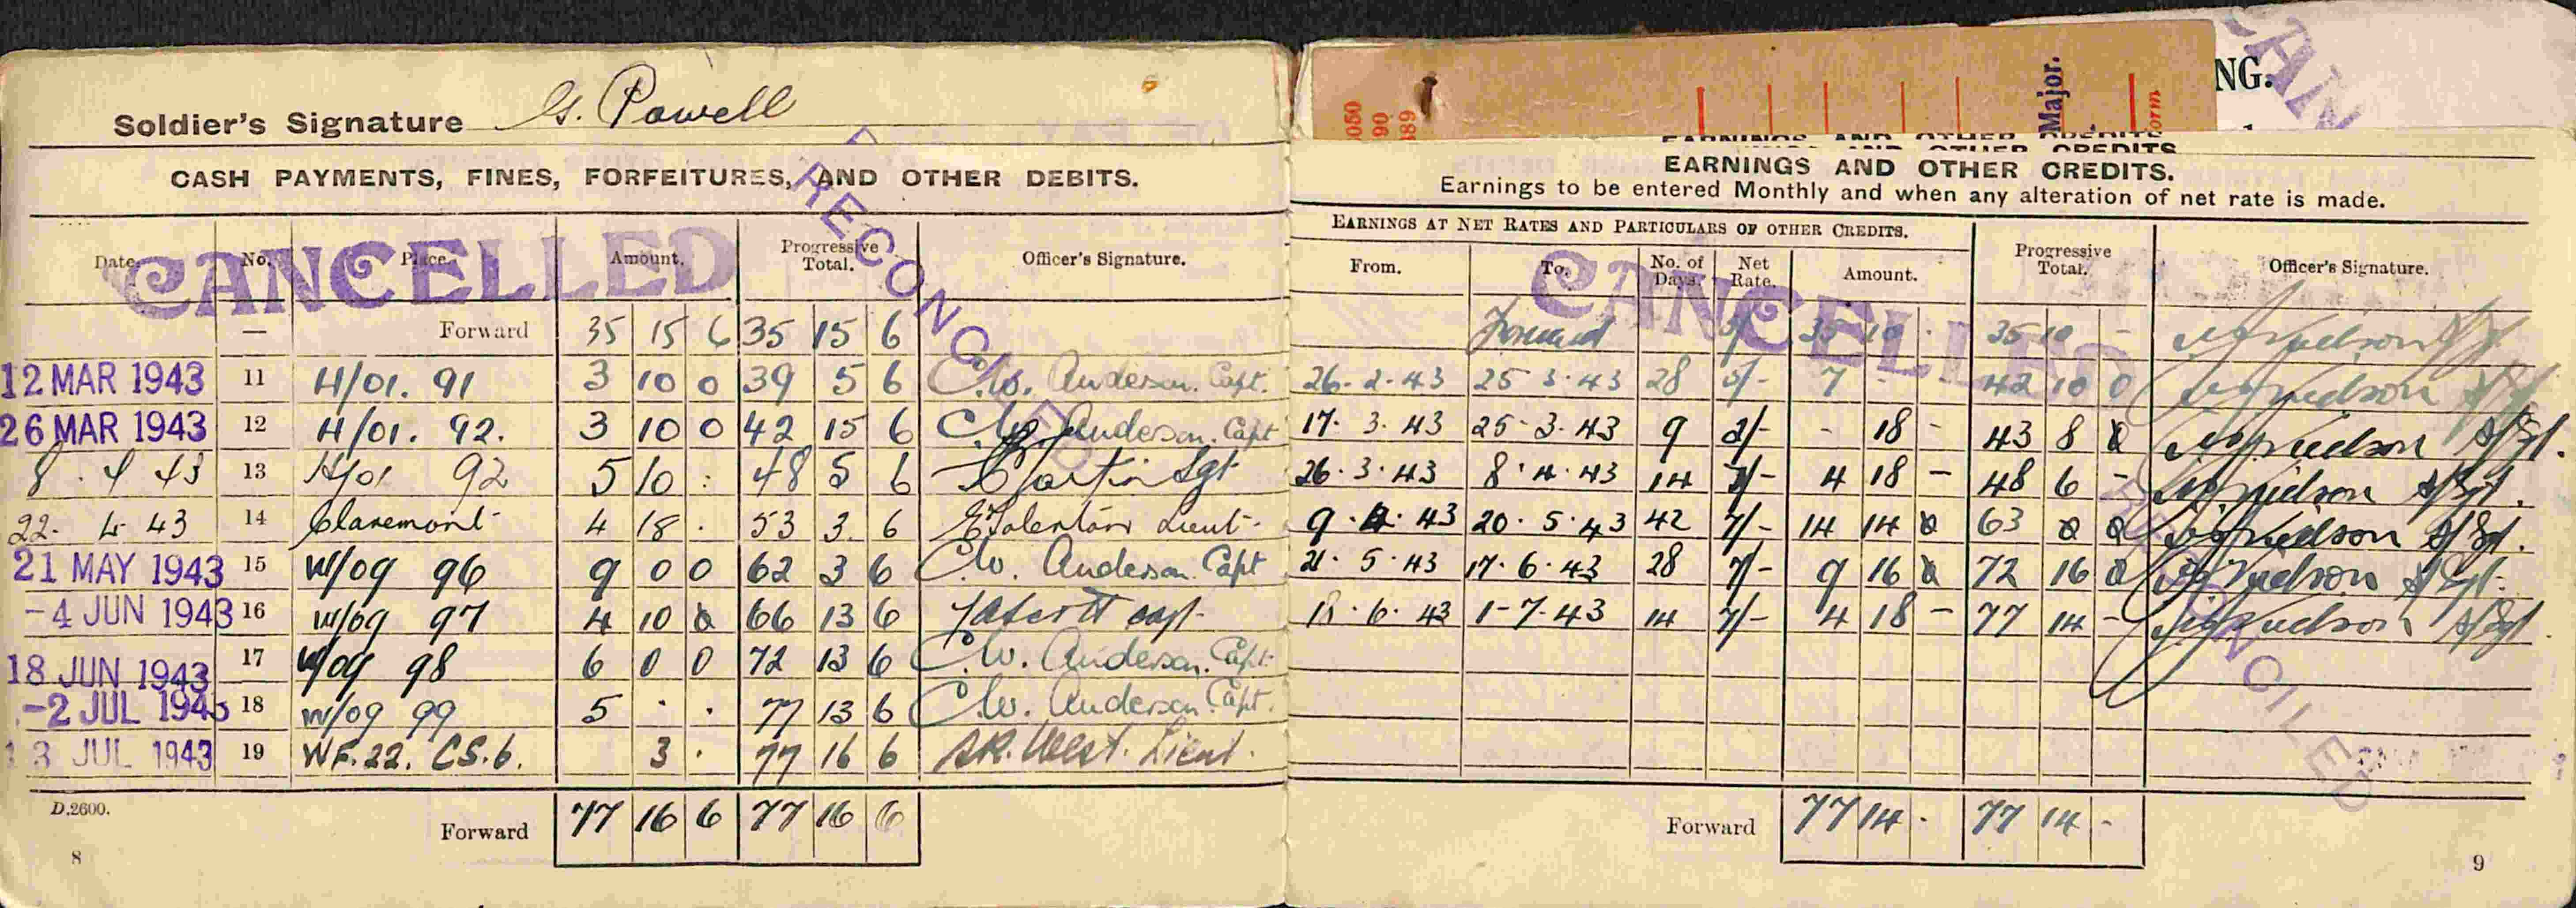 Soldier's Signature G. Powell
CASH PAYMENTS, FINES, FORFEITURES, AND OTHER DEBITS.
Date. No. Place. Amount. Progressive Total. Officer's Signature.
CANCELLED
RECONCILED
— Forward 35 15 6 35 15 6
12 MAR 1943 11 H/01. 91 3 10 0 39 5 6 C.W. Anderson. Capt.
26 MAR 1943 12 H/01. 92. 3 10 0 42 15 6 C.W. Anderson. Capt
8 . 4 43 13 H/01 92 5 10 : 48 5 6 Sgt
22. 4 43 14 Claremont 4 18 . 53 3. 6 Lieut.
21 MAY 1943 15 W/09 96 9 0 0 62 3 6 C.W. Anderson. Capt
-4 JUN 1943 16 W/09 97 4 10 0 66 13 6 Capt.
18 JUN 1943 17 W/09 98 6 0 0 72 13 6 C.W. Anderson. Capt.
-2 JUL 1943 18 W/09 99 5 . . 77 13 6 C.W. Anderson. Capt.
13 JUL 1943 19 WF.22. CS.6. 3 . 77 16 6 S.R. West. Lieut.
D.2600.
Forward 77 16 6 77 16 6
8
NG.
Major.
orm
050
90
389
EARNINGS AND OTHER CREDITS
EARNINGS AND OTHER CREDITS.
Earnings to be entered Monthly and when any alteration of net rate is made.
EARNINGS AT NET RATES AND PARTICULARS OF OTHER CREDITS.
From. To. No. of Days. Net Rate. Amount. Progressive Total. Officer's Signature.
CANCELLED
Forward 5/ 35 10 . 35 10 -
26-2-43 25 3.43 28 5/- 7 - 42 10 0
17. 3. 43 25-3-43 9 2/- - 18 - 43 8 0 S/Sgt.
26.3.43 8.4.43 14 7/- 4 18 - 48 6 - S/Sgt.
9.4.43 20.5.43 42 7/- 14 14 0 63 0 0 S/Sgt.
21.5.43 17.6.43 28 7/- 9 16 0 72 16 0 S/Sgt.
18.6.43 1-7-43 14 7/- 4 18 - 77 14 - S/Sgt
Forward 77 14 . 77 14 -
9